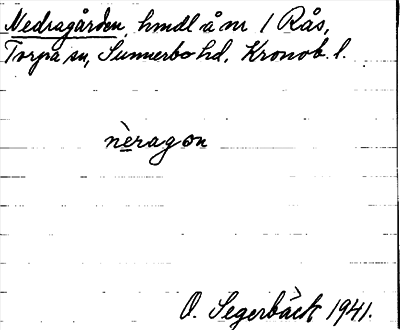 Nedragården, hmdl å nr 1 Rås,
Torpa sn, Sunnerbo hd, Kronob. l.
nèragon
O. Segerbäck 1941.